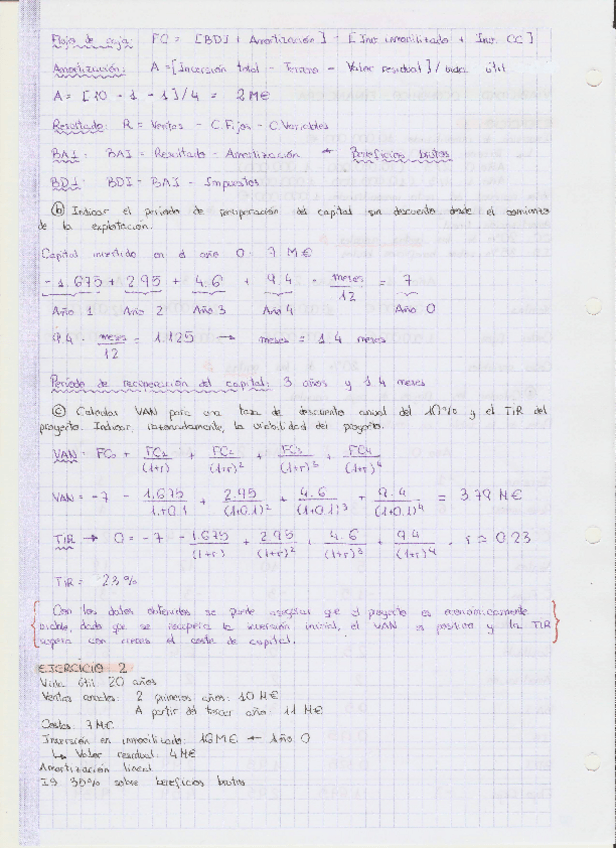 Flujo de caja: FC = [BDI + Amortización] - [Inv inmovilizado + Inv. CC]
Amortización: A = [Inversión total - Terreno - Valor residual] / vida útil
A = [10 - 1 - 1] / 4 = 2 M€
Resultado: R = Ventas - C. Fijos - C. Variables
BAI: BAI = Resultado - Amortización → Beneficios brutos
BDI: BDI = BAI - Impuestos
(b) Indicar el periodo de recuperación del capital sin descuento desde el comienzo
de la explotación.
Capital invertido en el año 0: 7 M€
-1.675 + 2.95 + 4.6 + 9.4 · meses/12 = 7
Año 1 Año 2 Año 3 Año 4 Año 0
9.4 · meses/12 = 1.125 → meses = 1.4 meses
Período de recuperación del capital: 3 años y 1.4 meses
(c) Calcular VAN para una tasa de descuento anual del 10% y el TIR del
proyecto. Indicar, razonadamente, la viabilidad del proyecto.
VAN = FC0 + FC1/(1+r) + FC2/(1+r)^2 + FC3/(1+r)^3 + FC4/(1+r)^4
VAN = -7 - 1.675/1+0.1 + 2.95/(1+0.1)^2 + 4.6/(1+0.1)^3 + 9.4/(1+0.1)^4 = 3.79 M€
TIR → 0 = -7 - 1.675/(1+r) + 2.95/(1+r)^2 + 4.6/(1+r)^3 + 9.4/(1+r)^4, r ≈ 0.23
TIR = 23%
Con los datos obtenidos se puede asegurar que el proyecto es económicamente
viable, dado que se recupera la inversión inicial, el VAN es positivo y la TIR
supera con creces el coste de capital.
EJERCICIO 2
Vida útil 20 años
Ventas anuales: 2 primeros años: 10 M€
A partir del tercer año: 11 M€
Costes: 7 M€
Inversión en inmovilizado: 16 M€ ← Año 0
↳ Valor residual: 4 M€
Amortización lineal
IS 35% sobre beneficios brutos